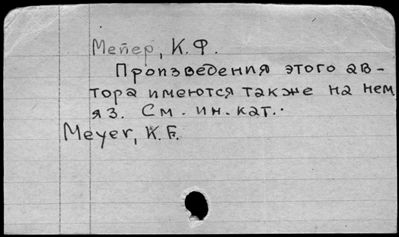 Мейер, К.Ф.
Произведения этого ав-
тора имеются также на нем.
яз. См. ин. кат..
Meyer, K.F.